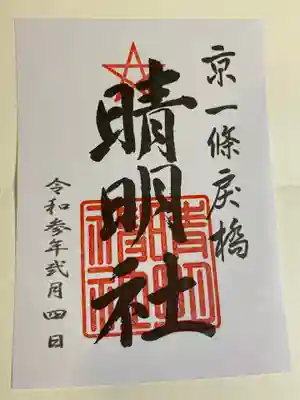 京一條戻橋
晴明社
晴明社
令和参年弐月四日